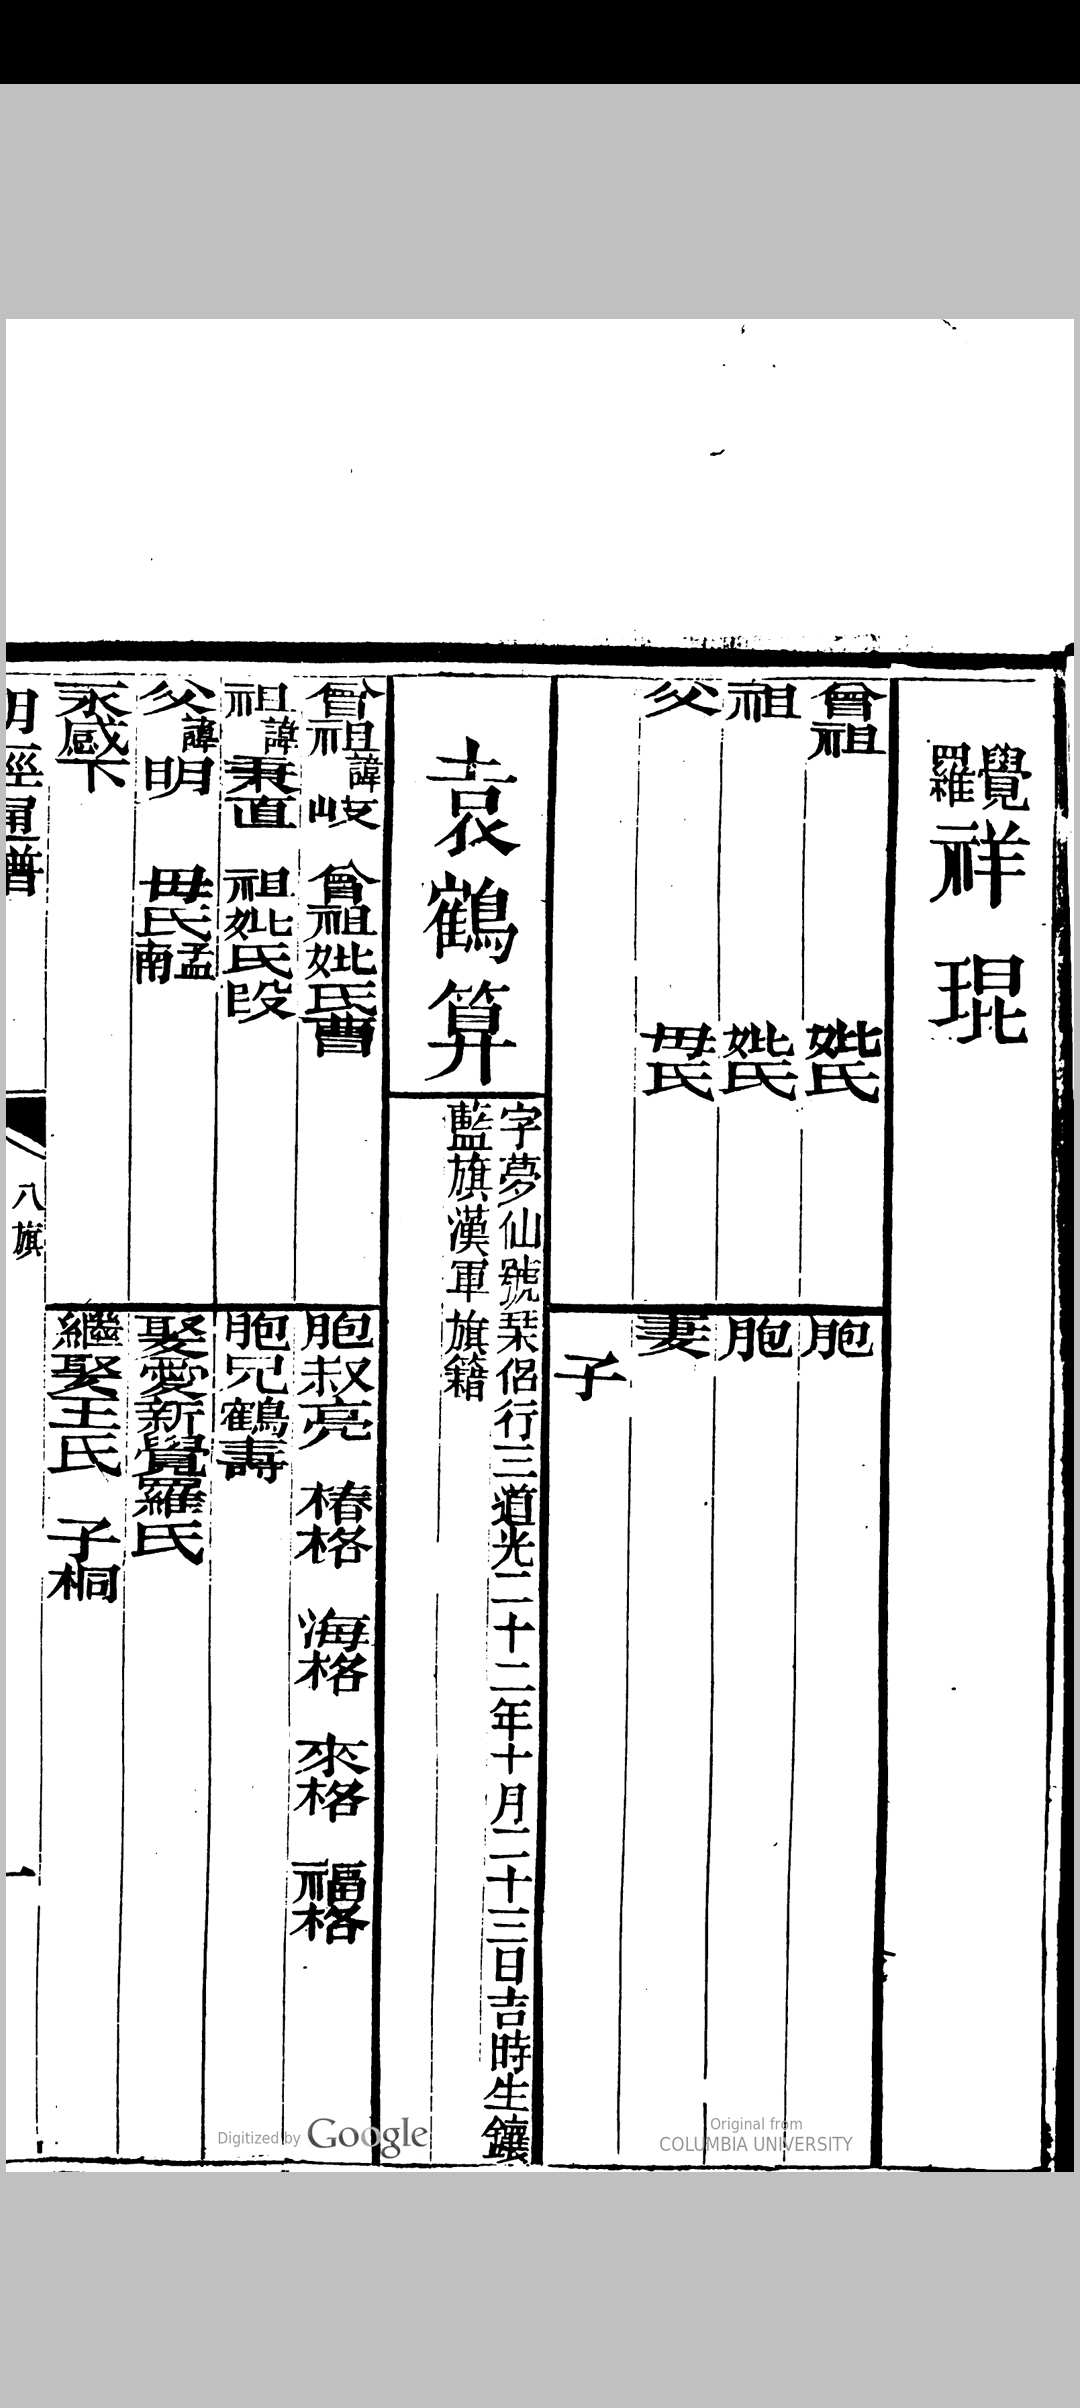 覺羅祥琨
曾祖 妣氏 胞
祖 妣氏 胞
父 母氏 妻
子
袁鶴算
字夢仙號琹侶行三道光二十二年十月二十三日吉時生鑲
藍旗漢軍旗籍
曾祖諱岐 曾祖妣氏曹
胞叔亮 椿格 海格 來格 福格
祖諱秉直 祖妣氏段
胞兄鶴壽
父諱明 母氏孟南
娶愛新覺羅氏
永感下
繼娶王氏 子桐
明經通譜
八旗
一
Digitized by Google
Original from
COLUMBIA UNIVERSITY